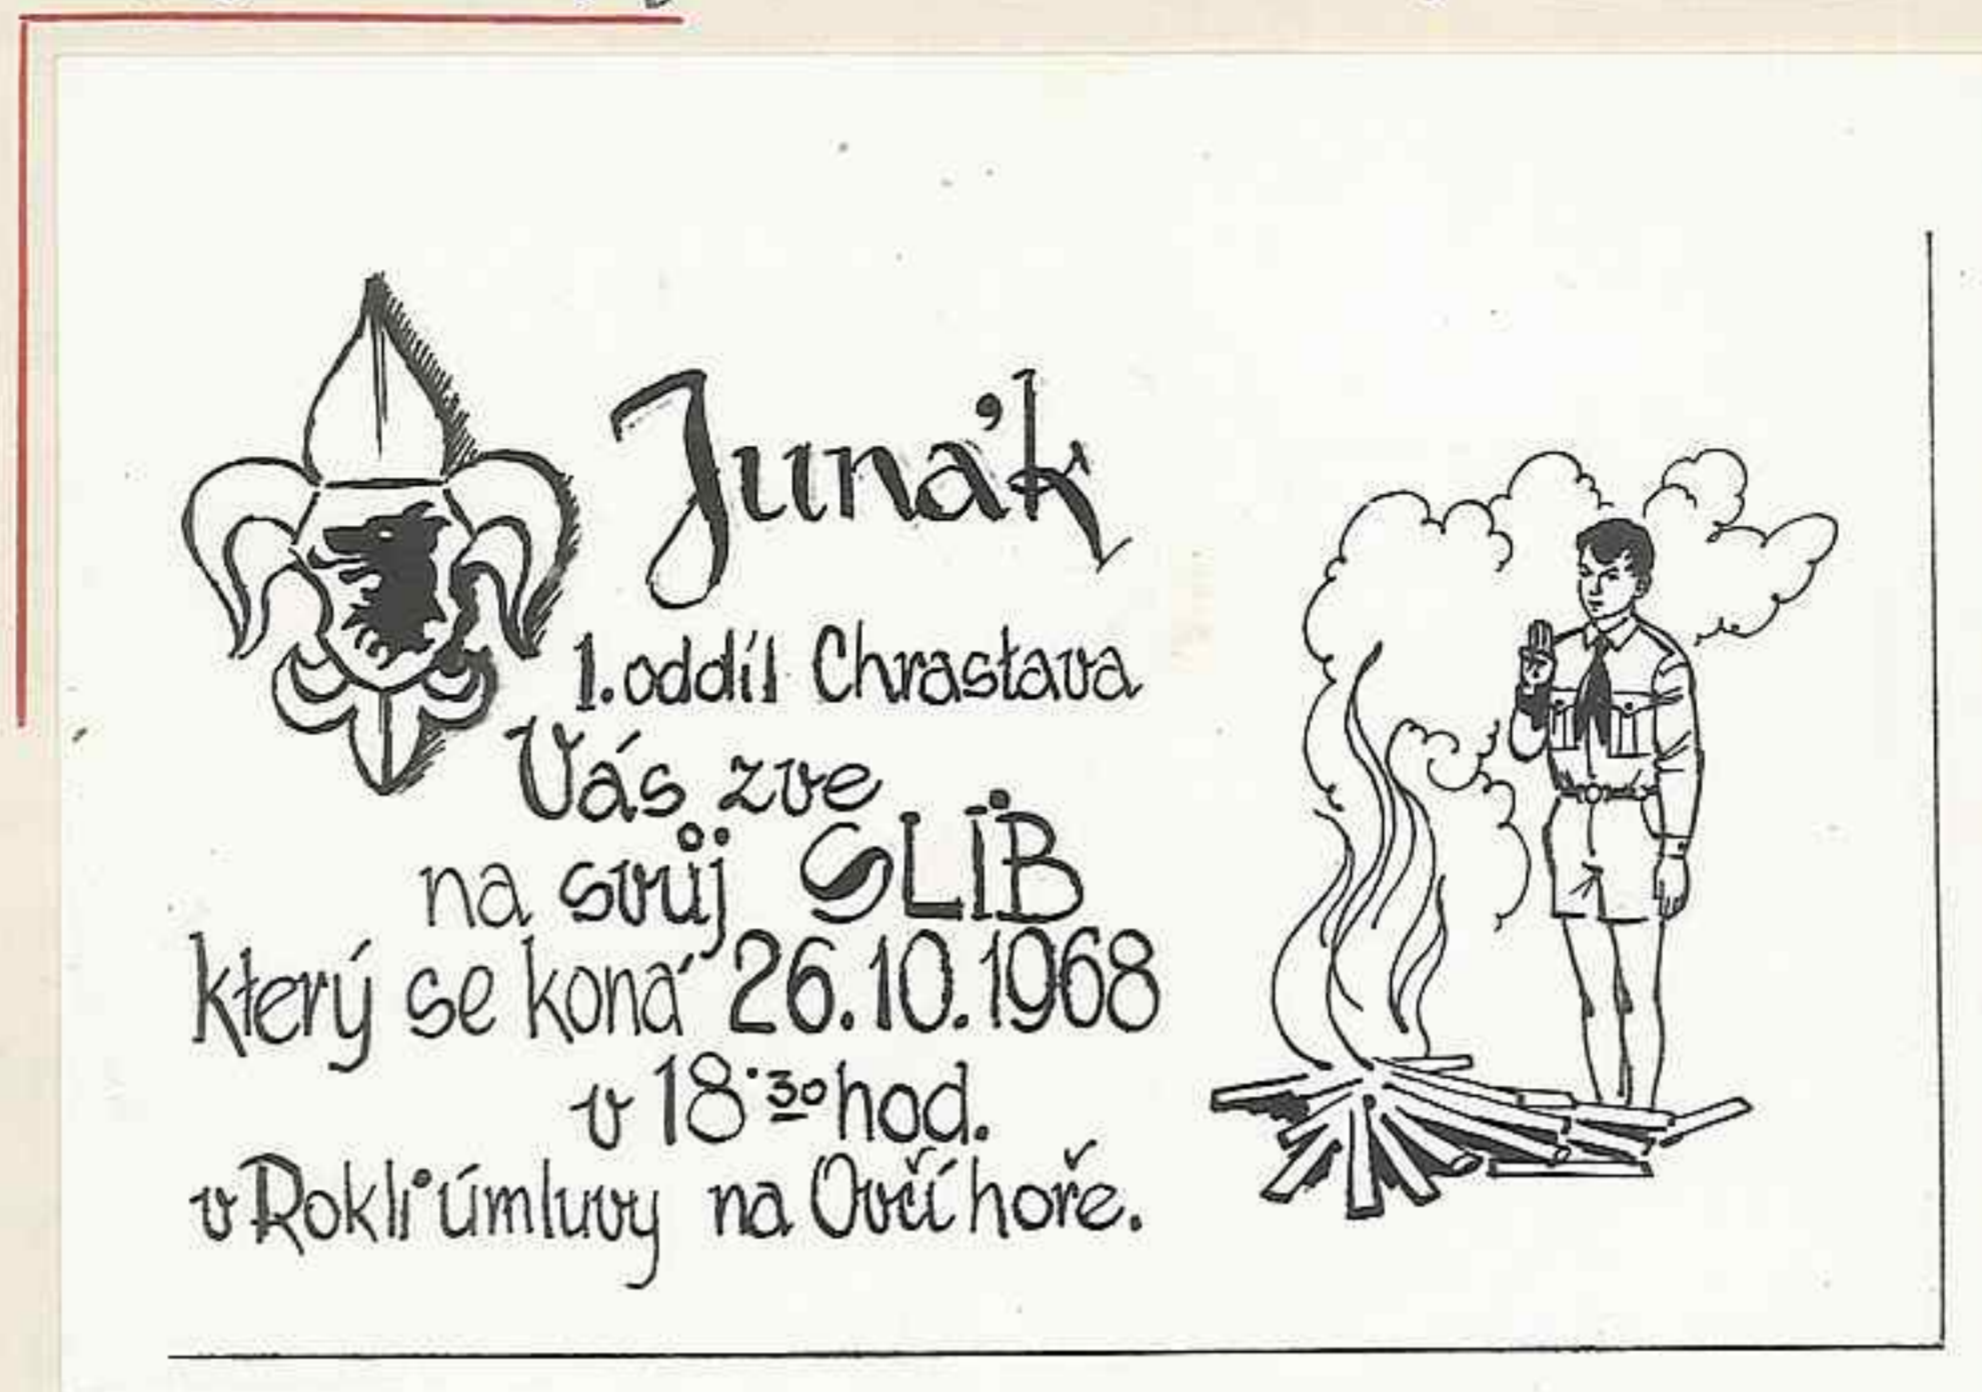 Junák
1. oddíl Chrastava
Vás zve
na svůj SLIB
který se koná 26.10.1968
v 18·30 hod.
v Rokli úmluvy na Ovčí hoře.